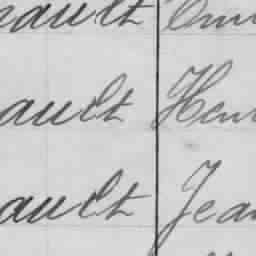 ault
ault Hen
ault Jean